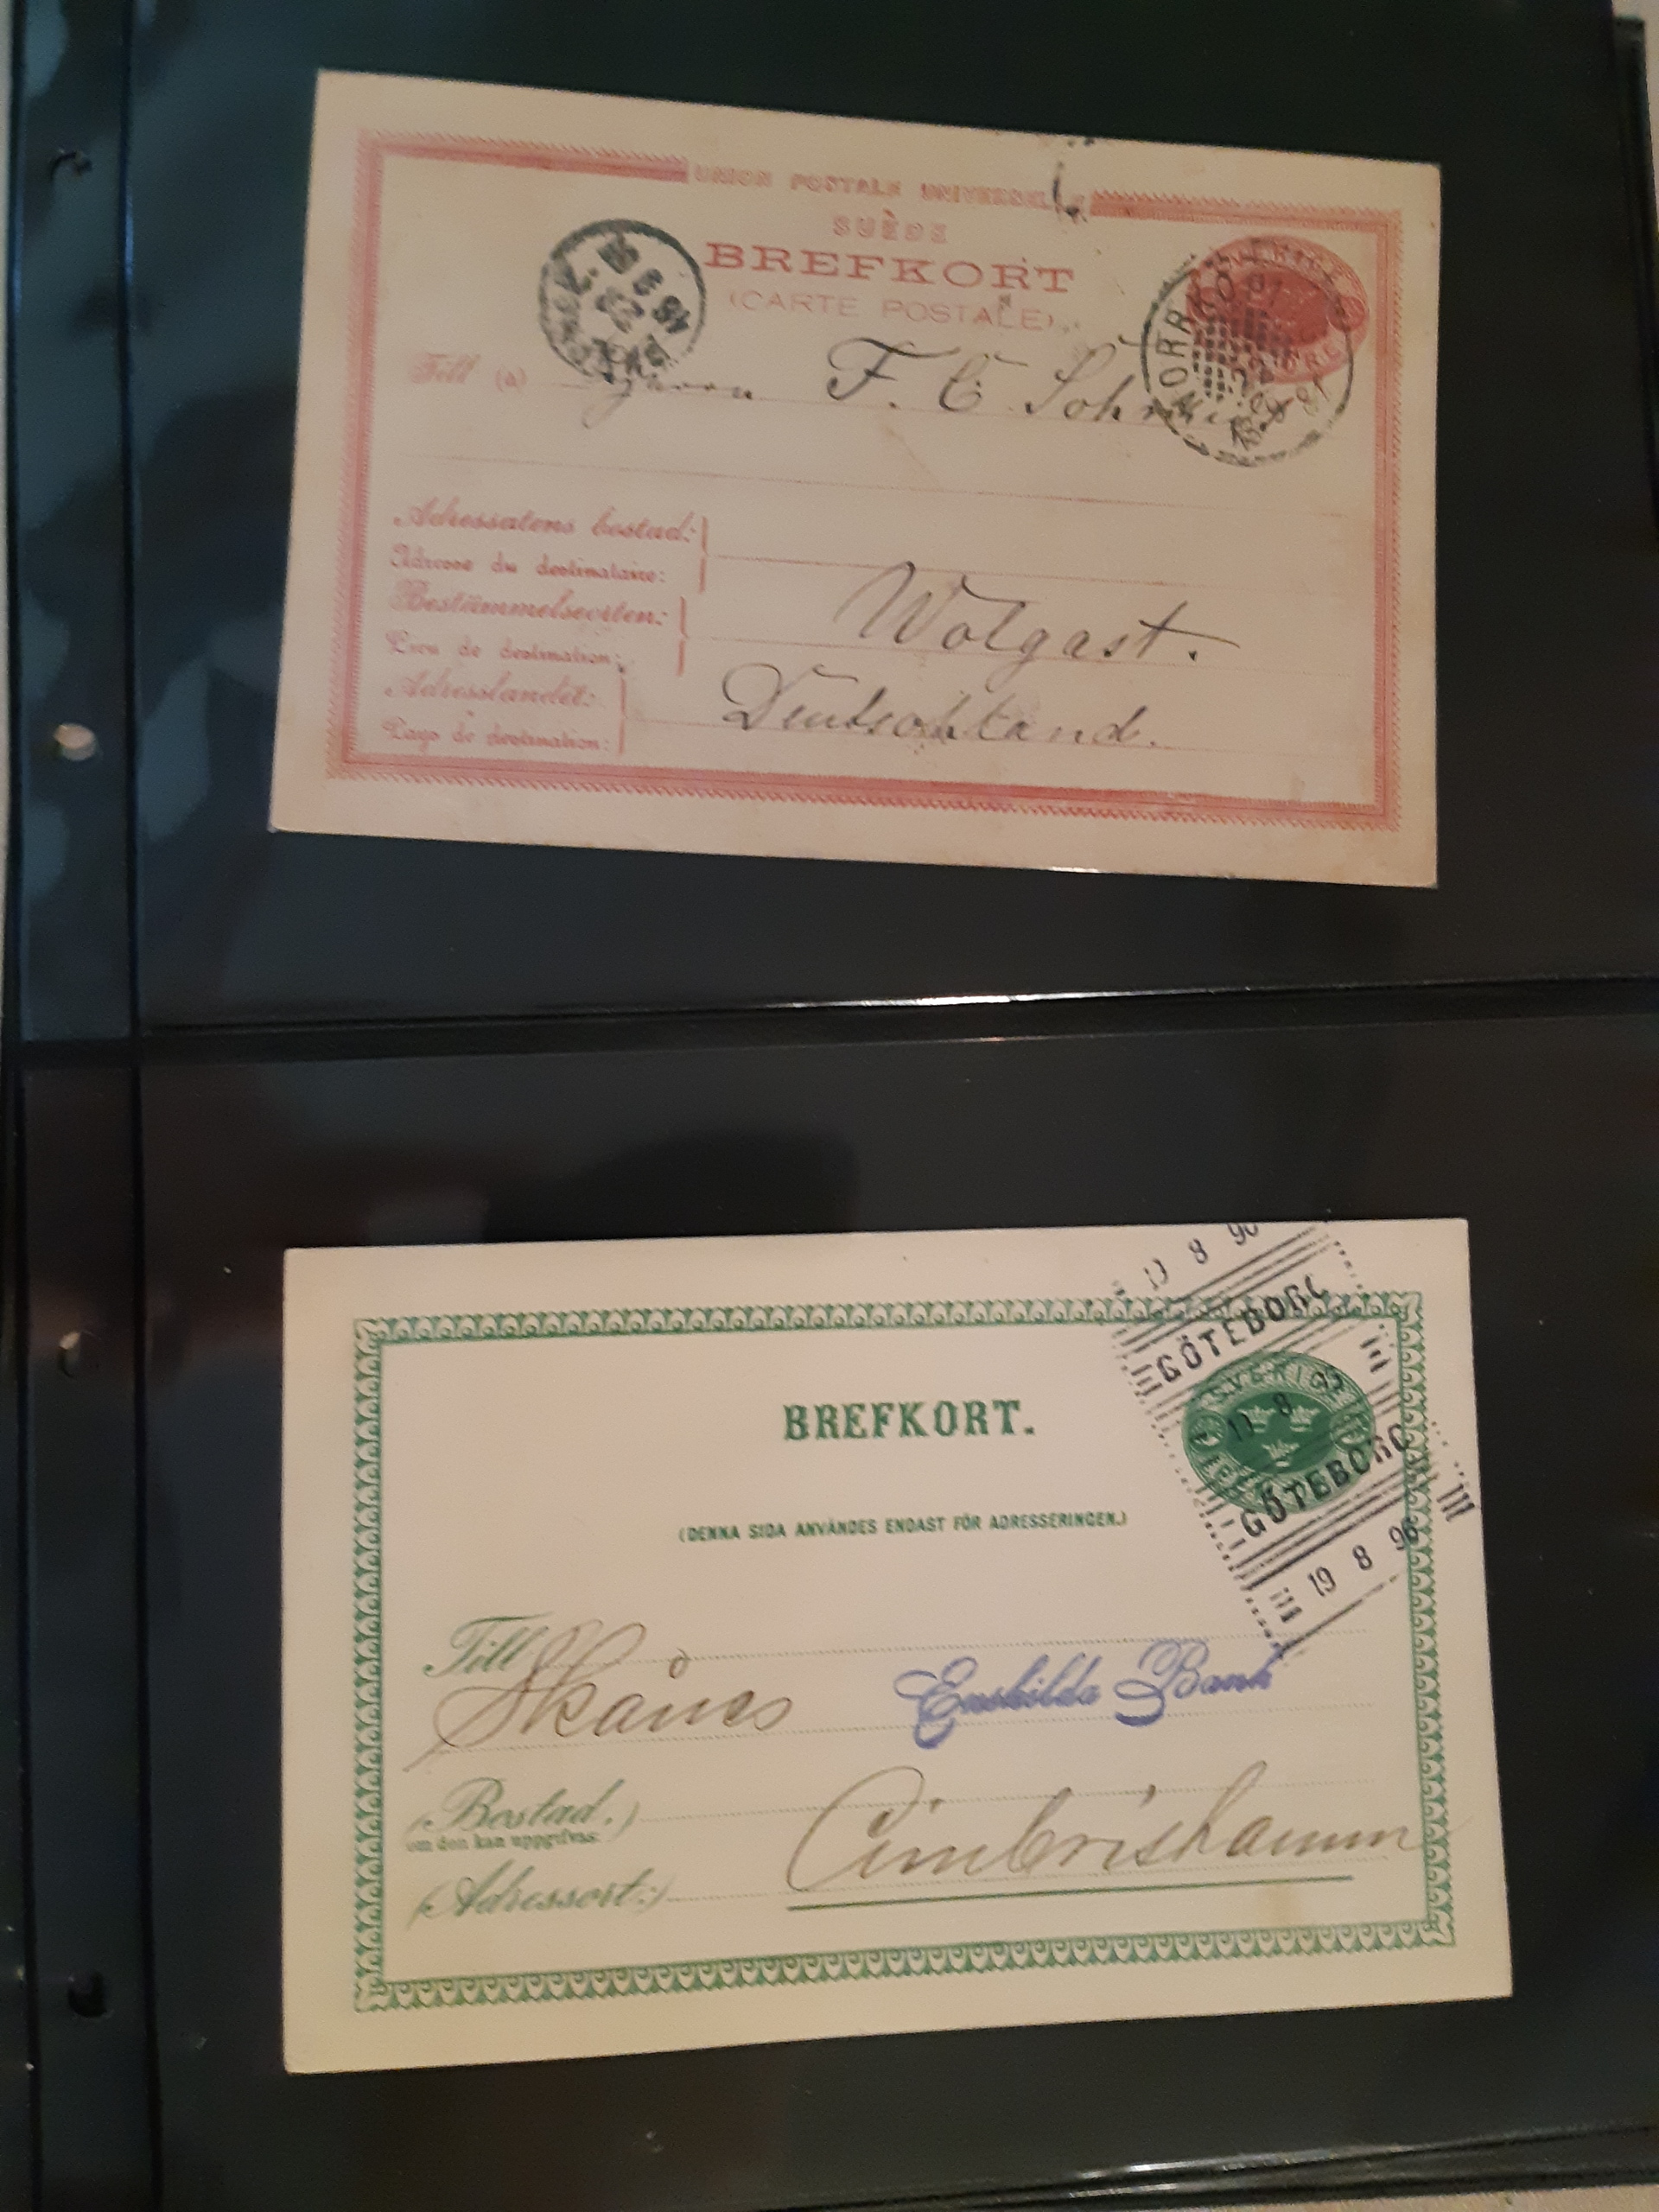 UNION POSTALE UNIVERSELLE
SUÈDE
BREFKORT
(CARTE POSTALE)
NORRKÖ
Till (a) Herrn F. C.
Adressatens bostad:
Adresse du destinataire:
Bestämmelseorten:
Lieu de destination:
Wolgast.
Adresslandet:
Pays de destination:
Deutschland.
19 8 96
GÖTEBORG
SVERIGE
BREFKORT.
GÖTEBORG
(DENNA SIDA ANVÄNDES ENDAST FÖR ADRESSERINGEN.)
19 8 96
Till
Skånes Enskilda Bank
(Bostad.)
om den kan uppgifvas:
Cimbrishamn
(Adressort:)